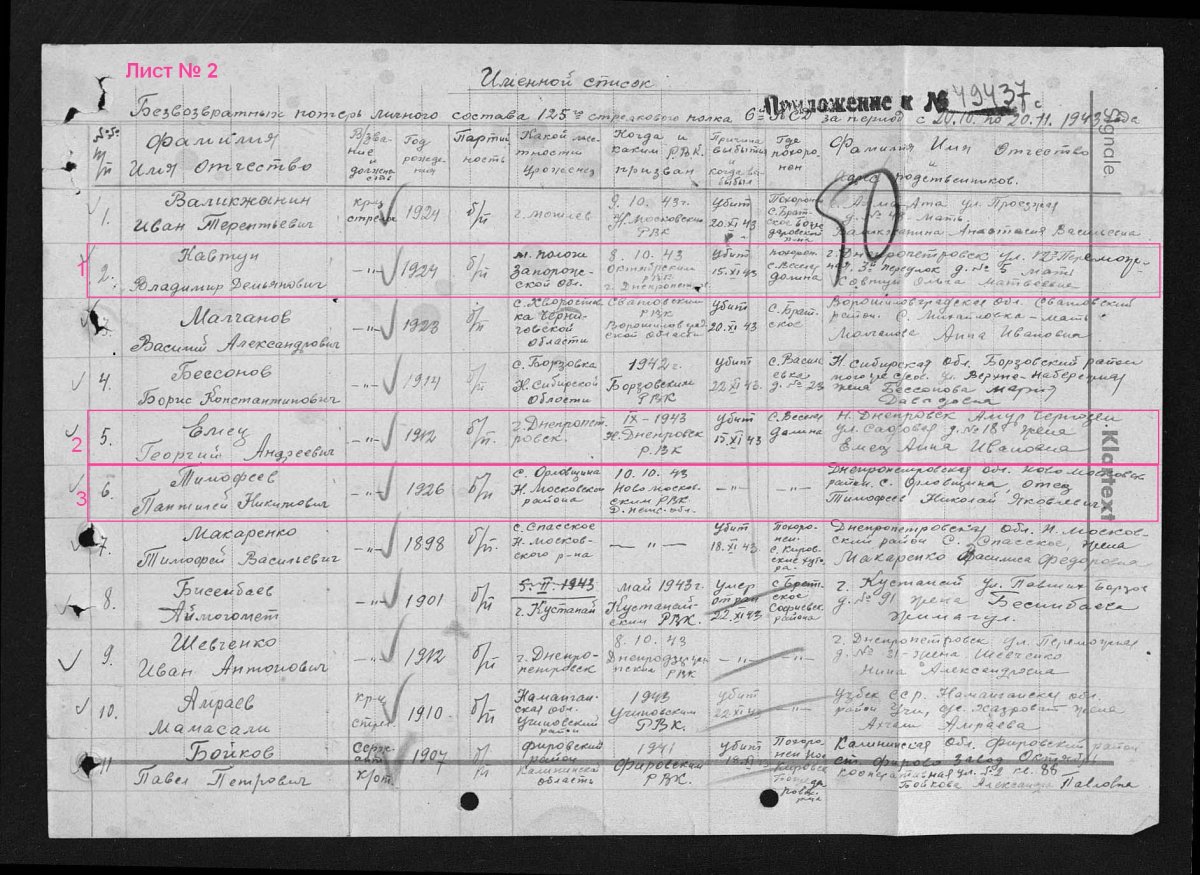 Лист № 2
Именной список
Приложение к № 49437с
Безвозвратных потерь личного состава 125го стрелкового полка 6й за период с 20.10. по 20.11. 1943 года
Фамилия Имя Отчество
Звание и
Год рождения
Партийность
Какой местности уроженец
Когда и каким РВК. призван
Причина выбытия и когда выбыл
Где похоронен
Фамилия Имя Отчество и Адрес родственников.
1. Валикжанин Иван Терентьевич
кр-ц стрелк
1924
б/п
г. Могилев
9. 10. 43г. Н. Московским РВК
убит 20.XI 43
Похорон с. Братское
Алма Ата ул. Проезжая д. № 48 - мать
Валикжанина Анастасия Васильевна
1
2. Кавтун Владимир Демьянович
-"-
1924
б/п
м. Пологи Запорожской обл.
8. 10. 43 Октябрьским РВК г. Днепропет.
убит 15.XI 43
похорон с. Веселая долина
г. Днепропетровск ул.
3й переулок д. № 5 мать
Кавтун Ольга Матвеевна
3. Малганов Василий Александрович
-"-
1923
б/п
с. Хворостинка Черниговской области
Сватовским РВК Ворошиловградской области
убит 20.XI 43
с. Братское
Ворошиловградская обл. Сватовский
район. с. Михайловка - мать
Молчанова Анна Ивановна
4. Бессонов Борис Константинович
-"-
1914
б/п
с. Борзовка Н. Сибирской Области
1942г. Борзовским РВК
убит 22.XI 43
с. Василевка д. № 23
Н. Сибирская обл. Борзовский район
ул. Верхне-Набережная
жена Бессонова Мария
Давыдовна
2
5. Емец Георгий Андреевич
-"-
1912
б/п
г. Днепропетровск.
IX-1943 Н. Днепровск РВК
убит 15.XI 43
с. Веселая долина
Н. Днепровск Амур
ул. Садовая д. № 18 жена
Емец Анна Ивановна
3
6. Тимофеев Пантилей Никитович
-"-
1926
б/п
с. Орловщина Н. Московского района
10. 10. 43 Новомосковским РВК Д. петс. обл.
-"-
-"-
Днепропетровская обл. Новомосковск
район. с. Орловщина, отец
Тимофеев Николай Яковлевич
7. Макаренко Тимофей Васильевич
-"-
1898
б/п
с. Спасское Н. Московского р-на
-"-
убит 18.XI 43
Похоронен с. Кировские хутора.
Днепропетровская Обл. Н. Московский район с. Спасское, жена
Макаренко Василиса Федоровна
8. Бисембаев Аймогомет
-"-
1901
б/п
5. II-1943
г. Кустанай
май 1943г. Кустанайским РВК.
умер от ран 22.XI 43
с. Братское Софиевск района
г. Кустанай ул. Павших Борцов
д. № 91 жена Бесимбаева
9. Шевченко Иван Антонович
-"-
1912
б/п
г. Днепропетровск
8. 10. 43 Днепродзержинским РВК
-"-
-"-
г. Днепропетровск ул.
д. № 31 - жена Шевченко
Нина Александровна
10. Амраев Мамасали
кр-ц стрел
1910
б/п
Наманганская обл. Учиновский район
1943 Учиновским РВК.
убит 22.XI 43
-"-
Узбек ССР. Наманганская обл.
район Учи, с/с Хазроват жена
Ахтам Амраева
11 Бойков Павел Петрович
Сержант к/от
1907
б/п
Фировский район Калининской область
1941 Фировским РВК.
убит
Похоронен
Калининская Обл. Фировский район
ст. Фирово Завод
кооперативная ул. № 2 кв. 88
Бойкова Александра Павловна
Signale
Klartext